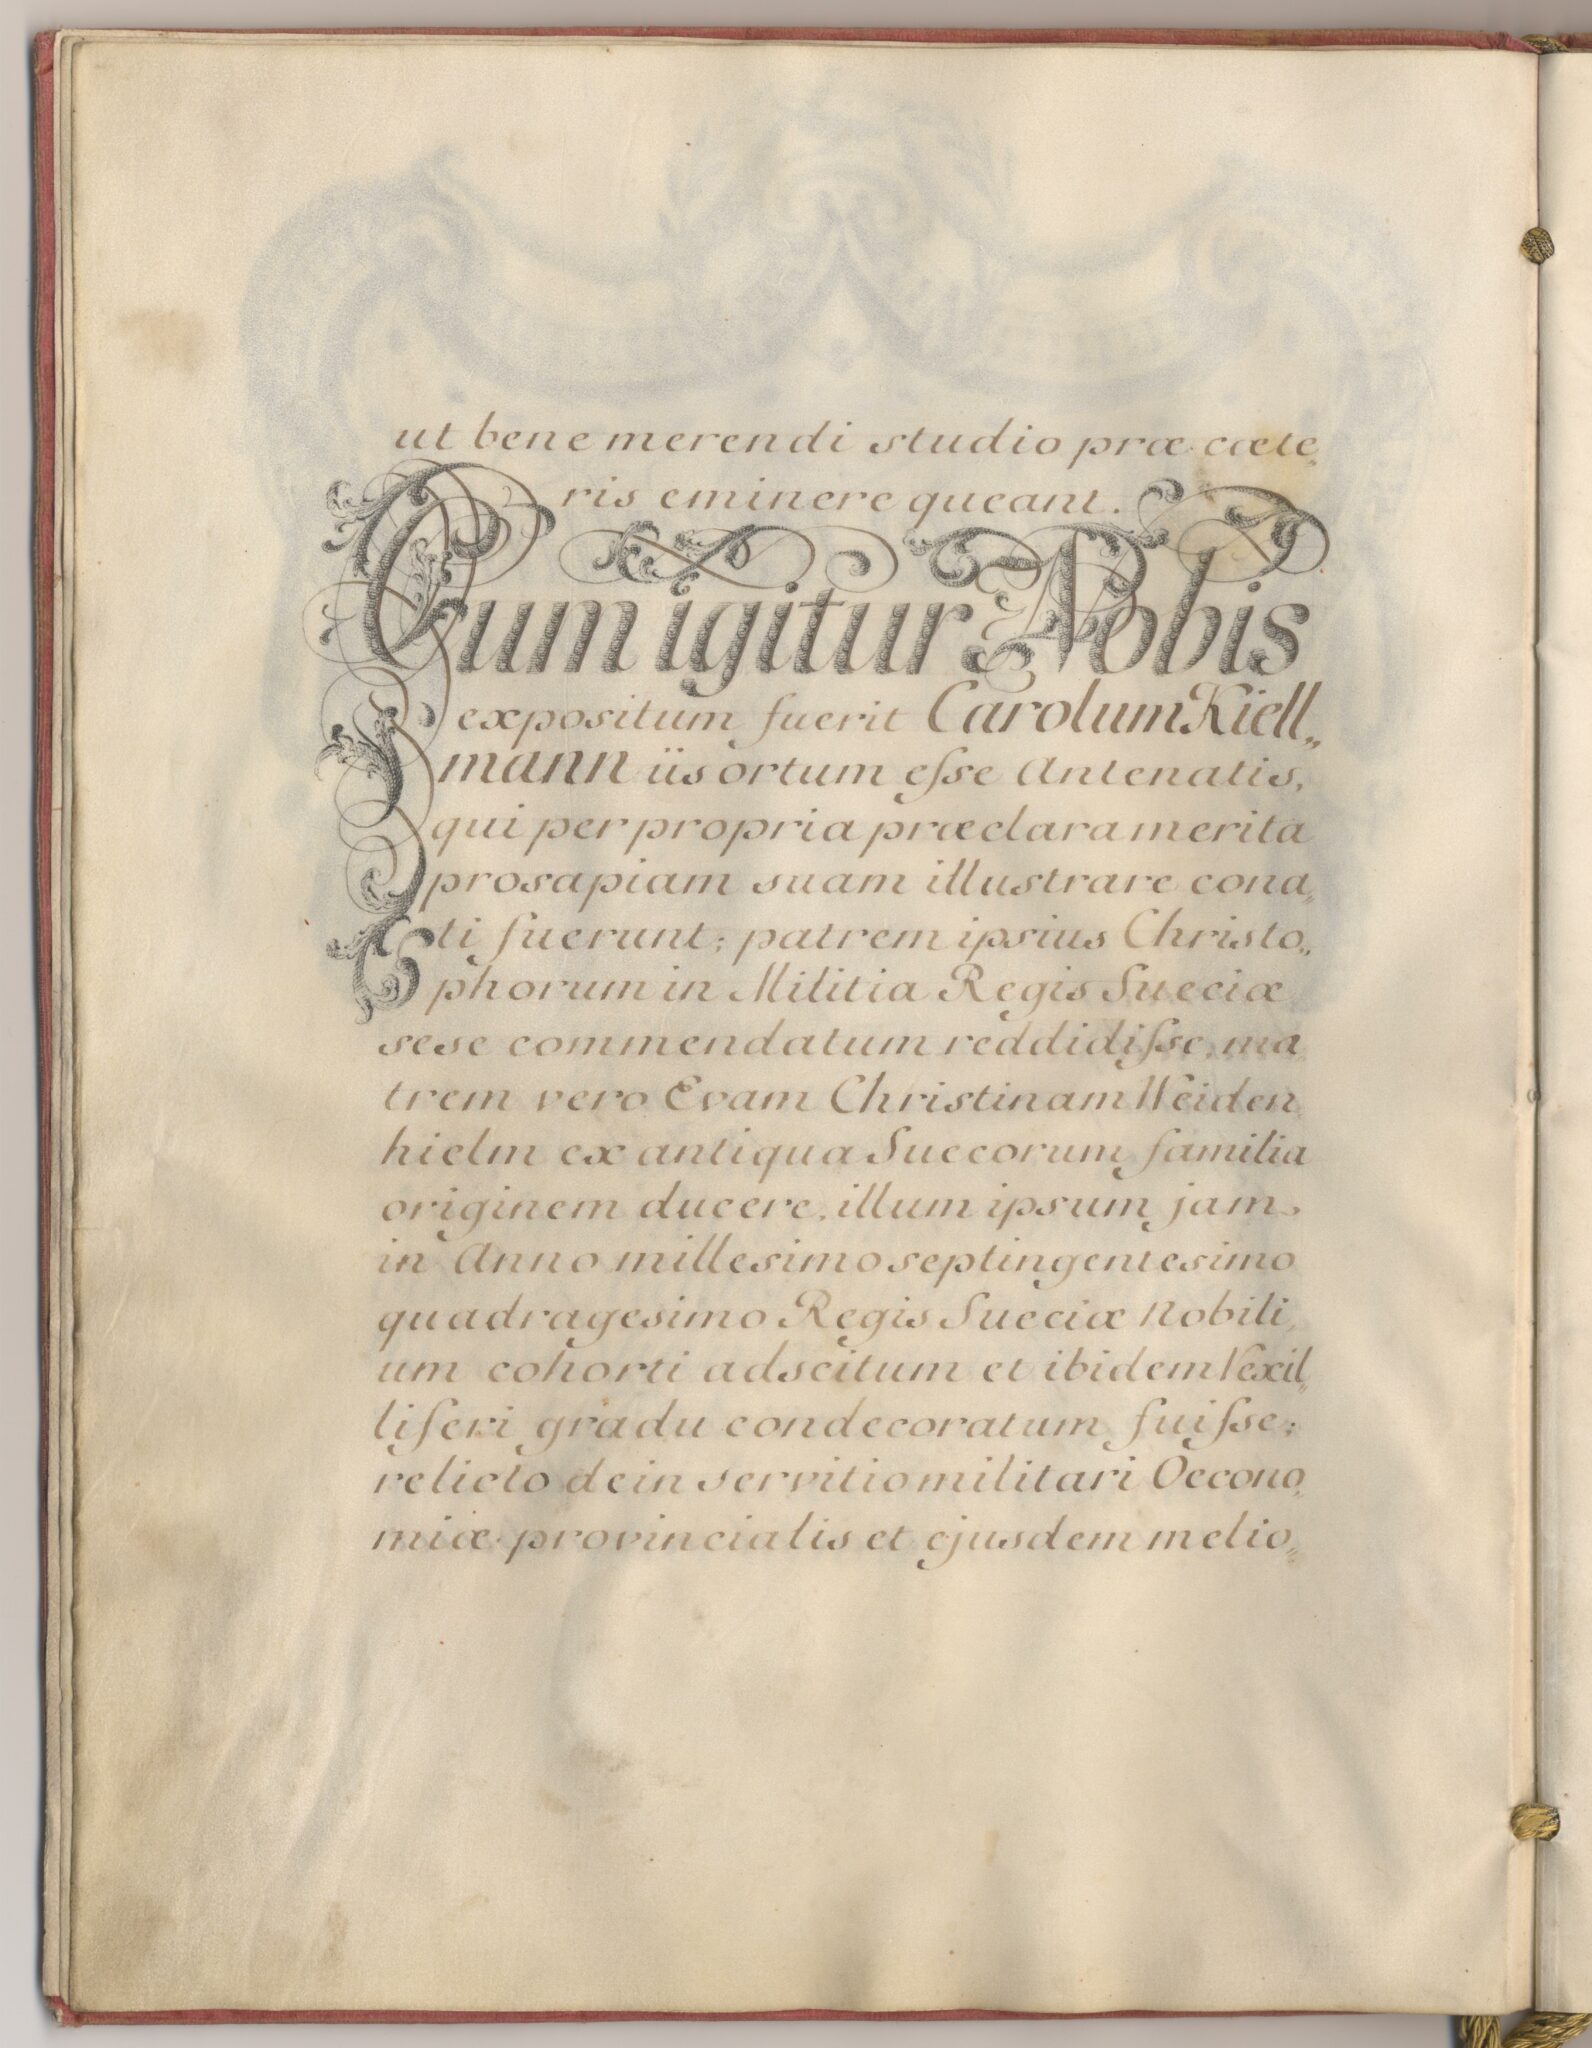 ut bene merendi studio præ cæte„
ris eminere queant.
Cum igitur Nobis
expositum fuerit Carolum Kiell„
mann iis ortum eſse Antenatis,
qui per propria præclara merita
prosapiam suam illustrare cona„
ti fuerunt; patrem ipsius Christo„
phorum in Militia Regis Sueciæ
sese commendatum reddidiſse, ma„
trem vero Evam Christinam Weiden„
hielm ex antiqua Suecorum familia
originem ducere, illum ipsum jam
in Anno millesimo septingentesimo
quadragesimo Regis Sueciæ Nobili„
um cohorti adscitum et ibidem Vexil„
liferi gradu condecoratum fuiſse;
relicto dein servitio militari Oecono„
miæ provincialis et ejusdem melio„